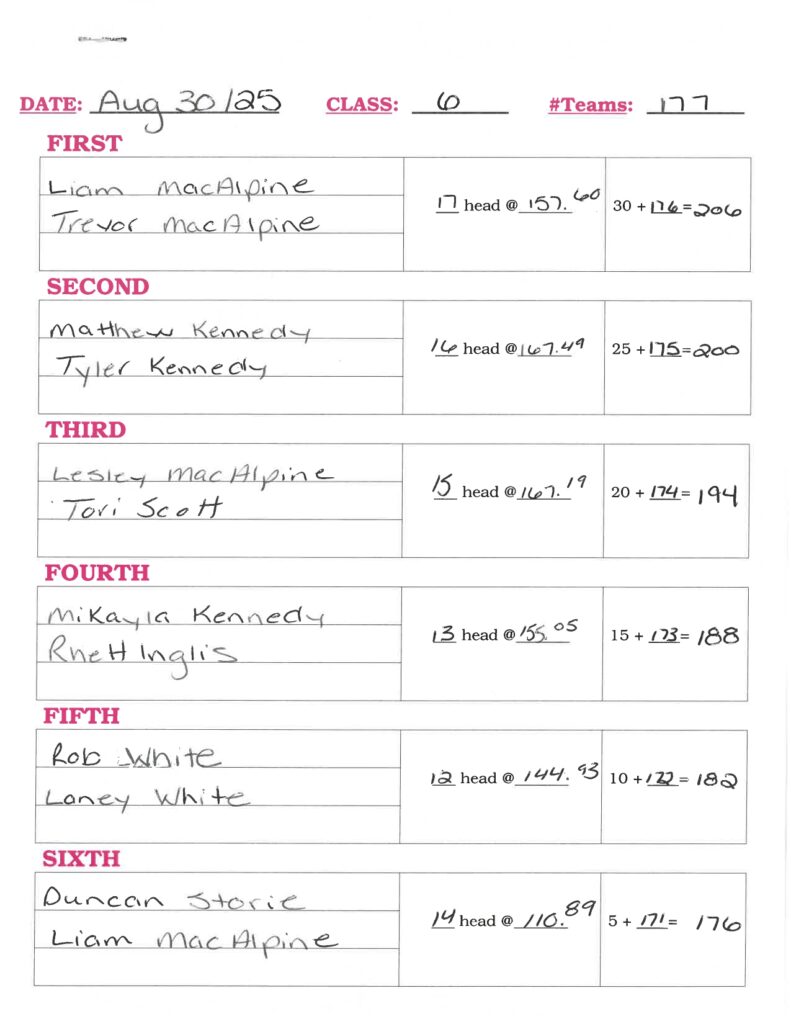 DATE: Aug 30/25 CLASS: 6 #Teams: 177
FIRST
Liam MacAlpine
Trevor MacAlpine
17 head @ 157.60
30 + 176 = 206
SECOND
Matthew Kennedy
Tyler Kennedy
16 head @ 167.49
25 + 175 = 200
THIRD
Lesley MacAlpine
Tori Scott
15 head @ 167.19
20 + 174 = 194
FOURTH
Mikayla Kennedy
Rhett Inglis
13 head @ 155.05
15 + 173 = 188
FIFTH
Rob White
Loney White
12 head @ 144.93
10 + 172 = 182
SIXTH
Duncan Storie
Liam MacAlpine
14 head @ 110.89
5 + 171 = 176